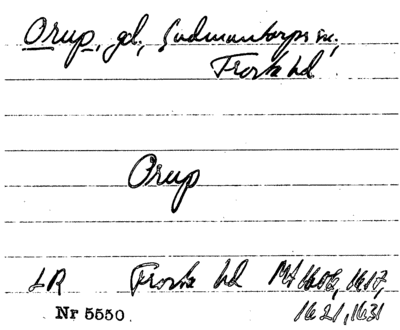 Orup, gd, Gudmuntorps sn,
Frosta hd.
Orup
LR Frosta hd Mt 1602, 1617,
1621, 1631
Nr 5550